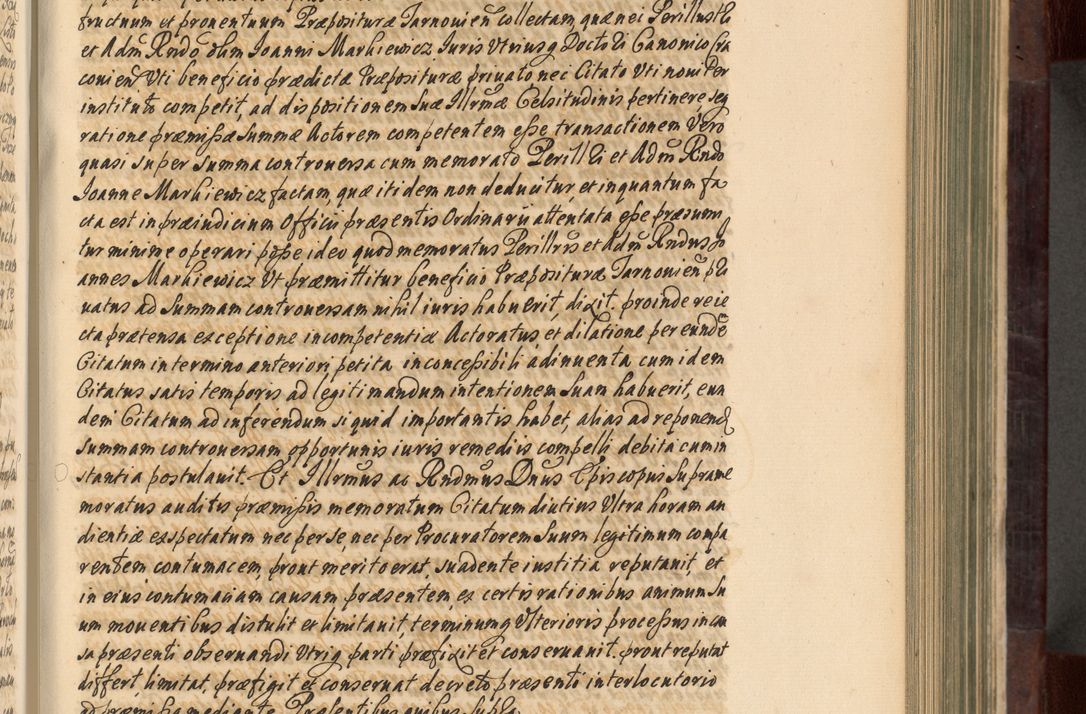 fructuum et prouentuum Præpositura Tarnouien collectam, quæ nec Perillustri
et Adm Rndo olim Joanni Markiewicz Iuris Utriusq Doctori Canonico Cra
couien Uti beneficio prædictæ Præposituræ priuato nec Citato Uti noui Per
instituto competit, ad dispositionem Suæ Illrmæ Celsitudinis pertinere seq
ratione præmissæ summæ Actorem competentem esse, transactionem Vero
quasi super Summa controuersa cum memorato Perillri et Adm Rndo
Joanne Markiewicz factam, quæ itidem non deducitur, et inquantum fa
cta est in præiudicium Officii præsentis Ordinarii attentata esse præsum
tur minime operari posse ideo quod memoratus Perillris et Adm Rndus Jo
annes Markiewicz Ut præmittitur beneficio Præposituræ Tarnouien pri
uatus ad Summam controuersam nihil iuris habuerit, dixit. proinde reie
cta prætensa exceptione incompetentiæ Actoratus, et dilatione per eunde
Citatum in termino anteriori petita inconcessibili adinuenta cum idem
Citatus satis temporis ad legitimandum intentionem Suam habuerit, eun
dem Citatum ad inferendum si quid importantis habet, alias ad reponend
summam controuersam opportunis iuris remediis compelli debita cum in
stantia postulauit. Et Illrmus ac Rndmus Dnus Episcopus Supra me
moratus auditis præmissis memoratum Citatum diutius Ultra horam au
dientiæ exspectatum nec per se, nec per Procuratorem Suum legitimum compa
rentem contumacem, prout merito erat, suadente iustitia reputauit, et
in eius contumaciam causam præsentem, ex certis rationibus animum Su
um mouentibus distulit et limitauit, terminumq Ulterioris processus in cau
sa præsenti obseruandi Utriq parti præfixit et conseruauit. prout reputat
differt, limitat, præfigit et conseruat decreto præsenti interlocutorio
ad præmissa mediante Præsentibus quibus supra.